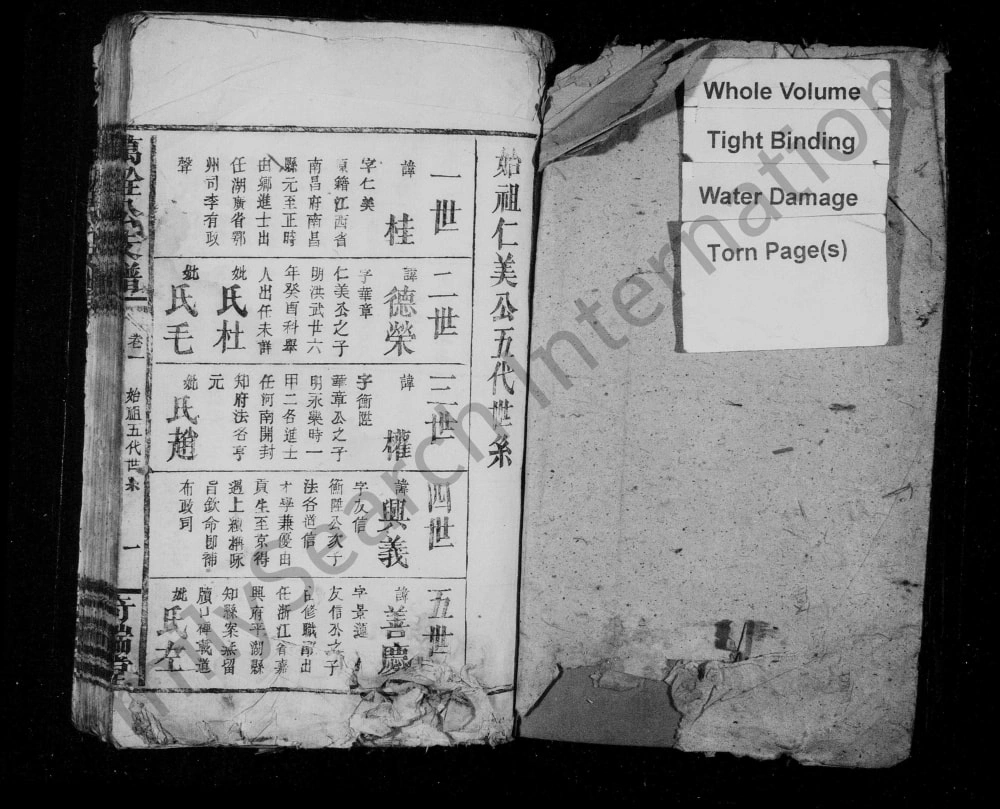 Whole Volume
Tight Binding
Water Damage
Torn Page(s)
始祖仁美公五代世系
一世
諱
桂
字仁美
原籍江西省
南昌府南昌
縣元至正時
由鄉進士出
任湖廣省鄂
州司李有政
聲
二世
諱
德榮
字華章
仁美公之子
明洪武世六
年癸酉科舉
人出任未詳
妣
氏杜
妣
氏毛
三世
諱
權
字衡陞
華章公之子
明永樂時一
甲二名進士
任河南開封
知府法名亨
元
妣
氏趙
四世
諱
興義
字友信
衡陞公次子
法名道信
才學兼優由
貢生至京得
遇上
旨欽命即補
布政司
五世
諱
善慶
字景蓮
友信公之子
自修職郎出
任浙江省嘉
興府平湖縣
知縣案無留
牘口碑載道
妣
氏左
卷一
始祖五代世系
一
FamilySearch International